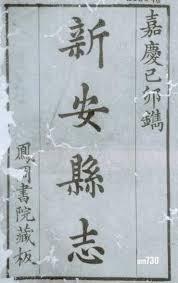 嘉慶己卯鐫
新安縣志
鳳岡書院藏板
am730